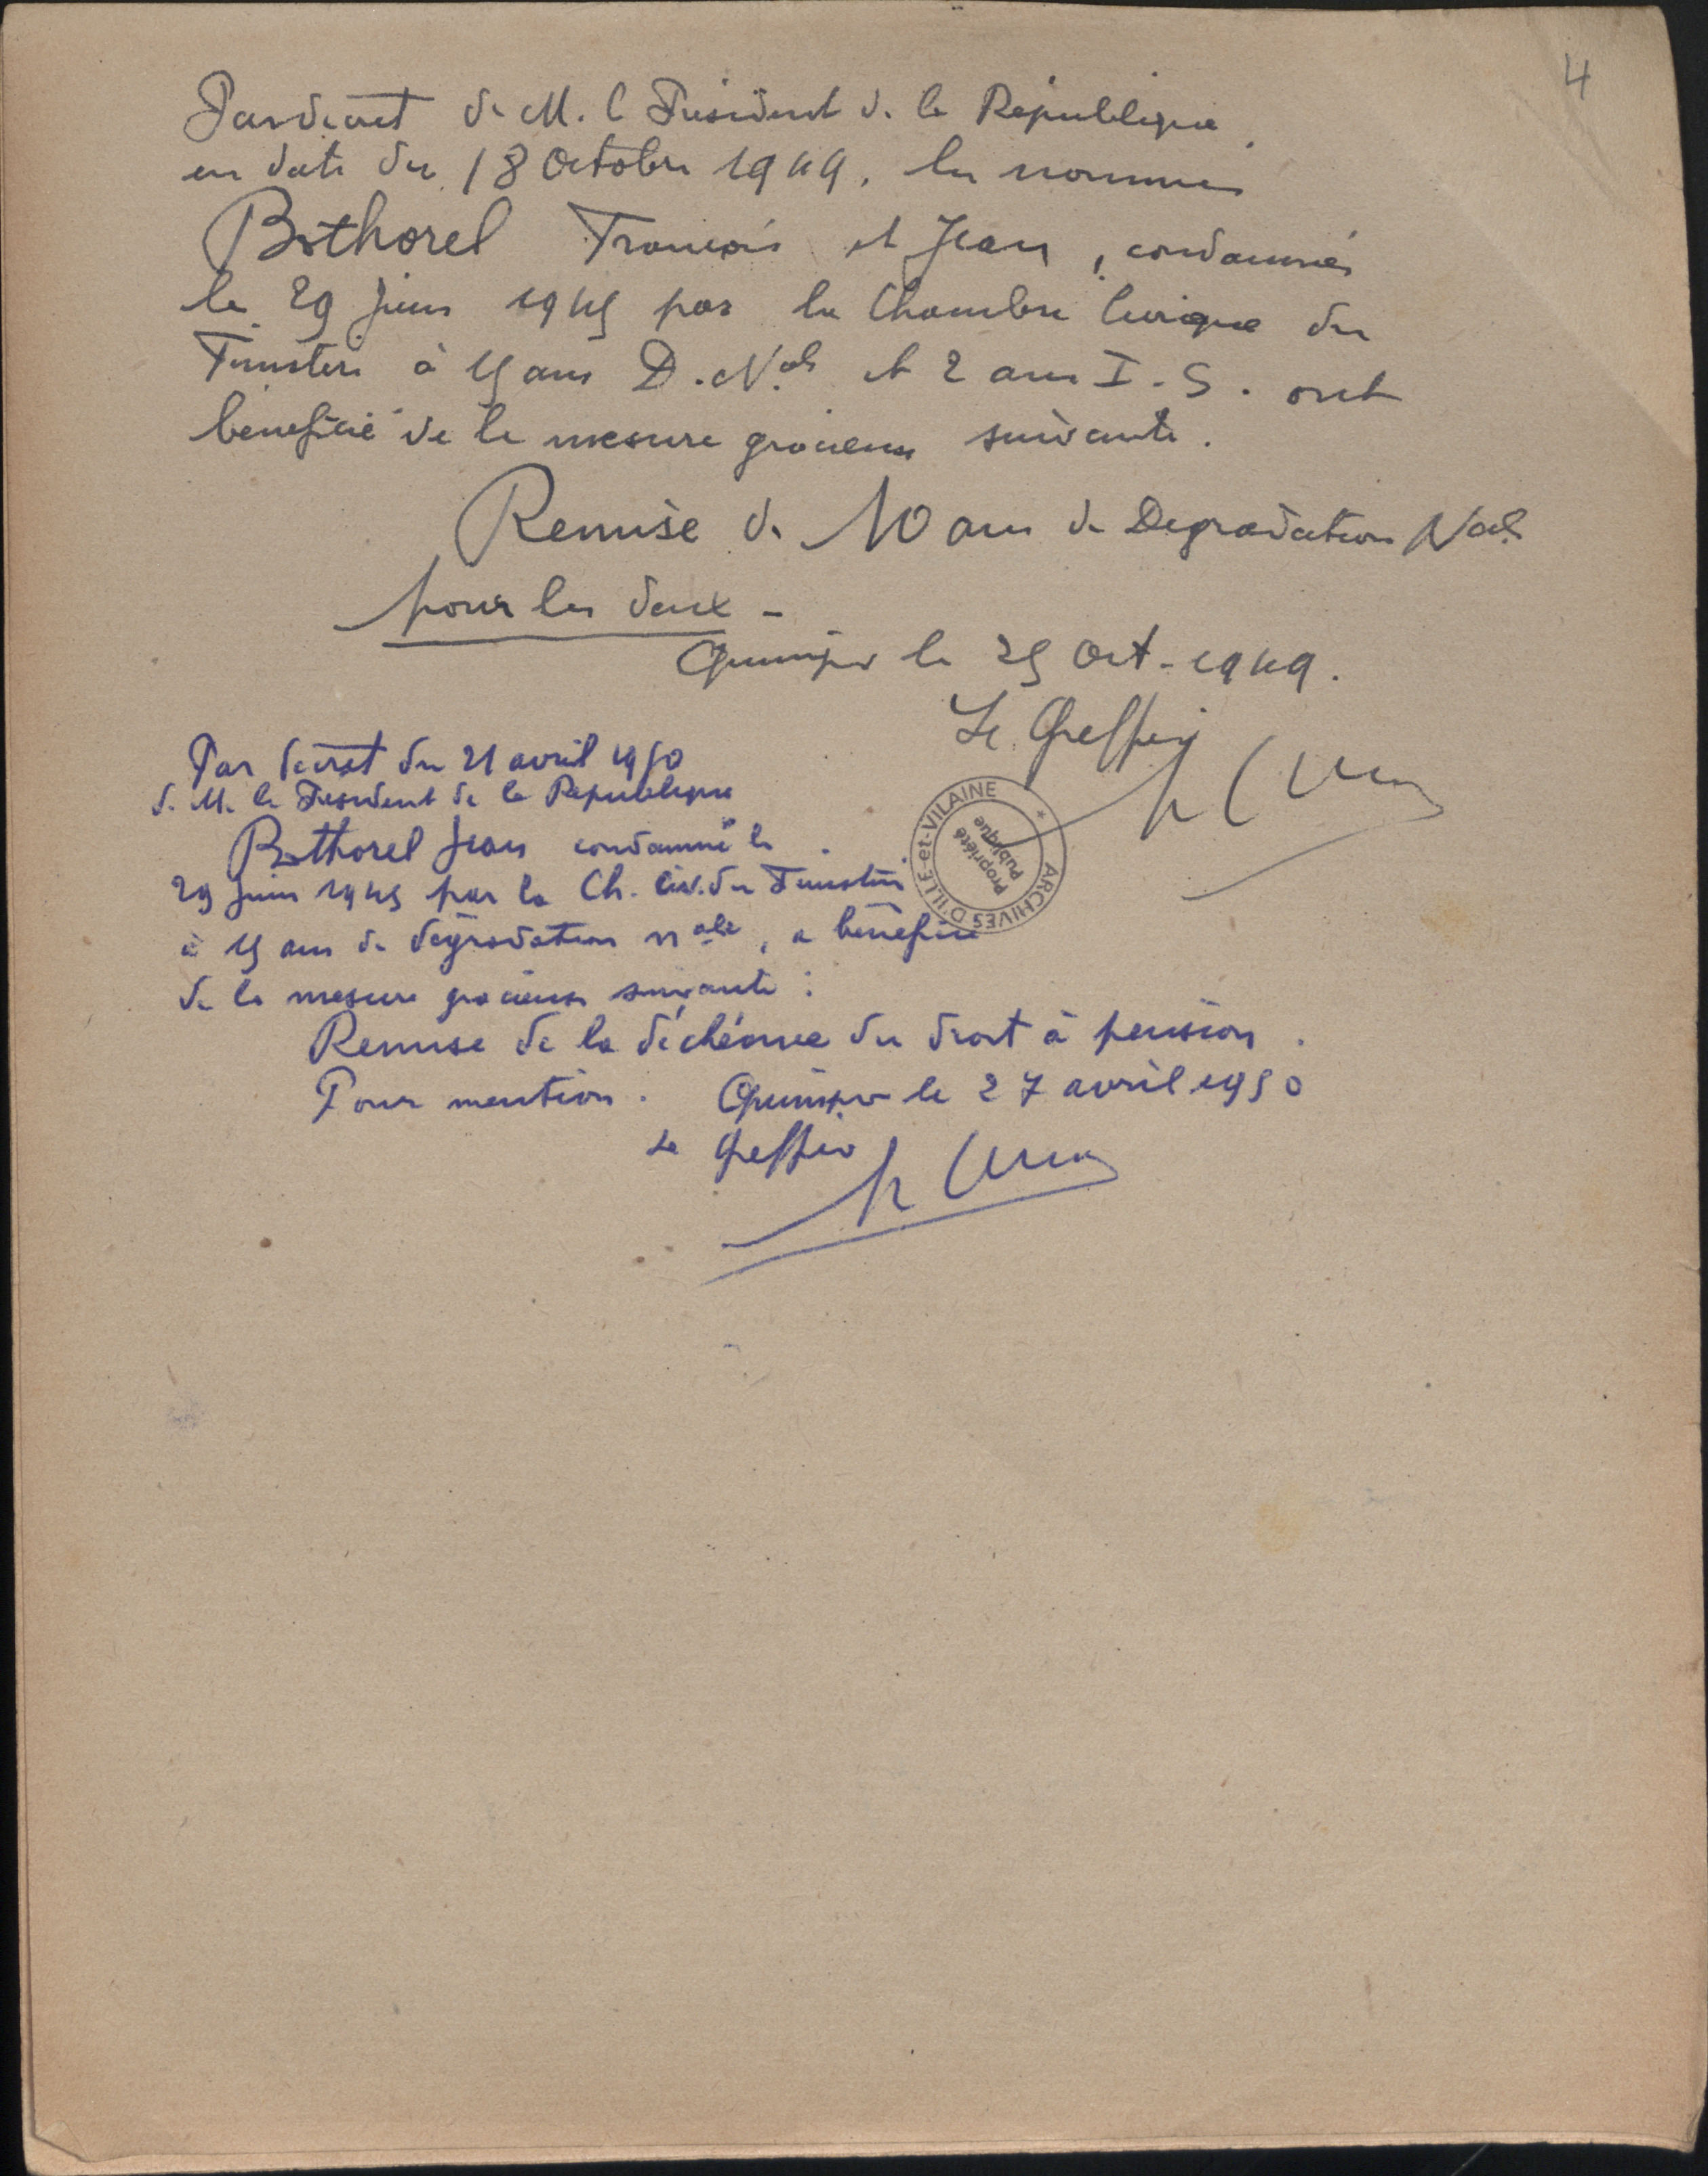 4
Par decret de M. l President de la République
en date du 18 Octobre 1949, les nommés
Bothorel François et Jean, condamnés
le 29 Juin 1945 par la Chambre Civique du
Finistère à 15 ans D. Nale et 2 ans I. S. ont
bénéficié de la mesure gracieuse suivante.
Remise de 10 ans de Degradation Nale
pour les deux -
Quimper le 25 Oct - 1949.
Le Greffier
Par decret du 21 avril 1950
de M. le President de la Republique
Bothorel Jean condamné le
29 Juin 1945 par la Ch. civ. du Finistère
à 15 ans de dégradation nale, a bénéficié
de la mesure gracieuse suivante :
Remise de la déchéance du droit à pension.
Pour mention. Quimper le 27 avril 1950
Le Greffier
ARCHIVES D'ILLE-et-VILAINE *
Propriété
Publique